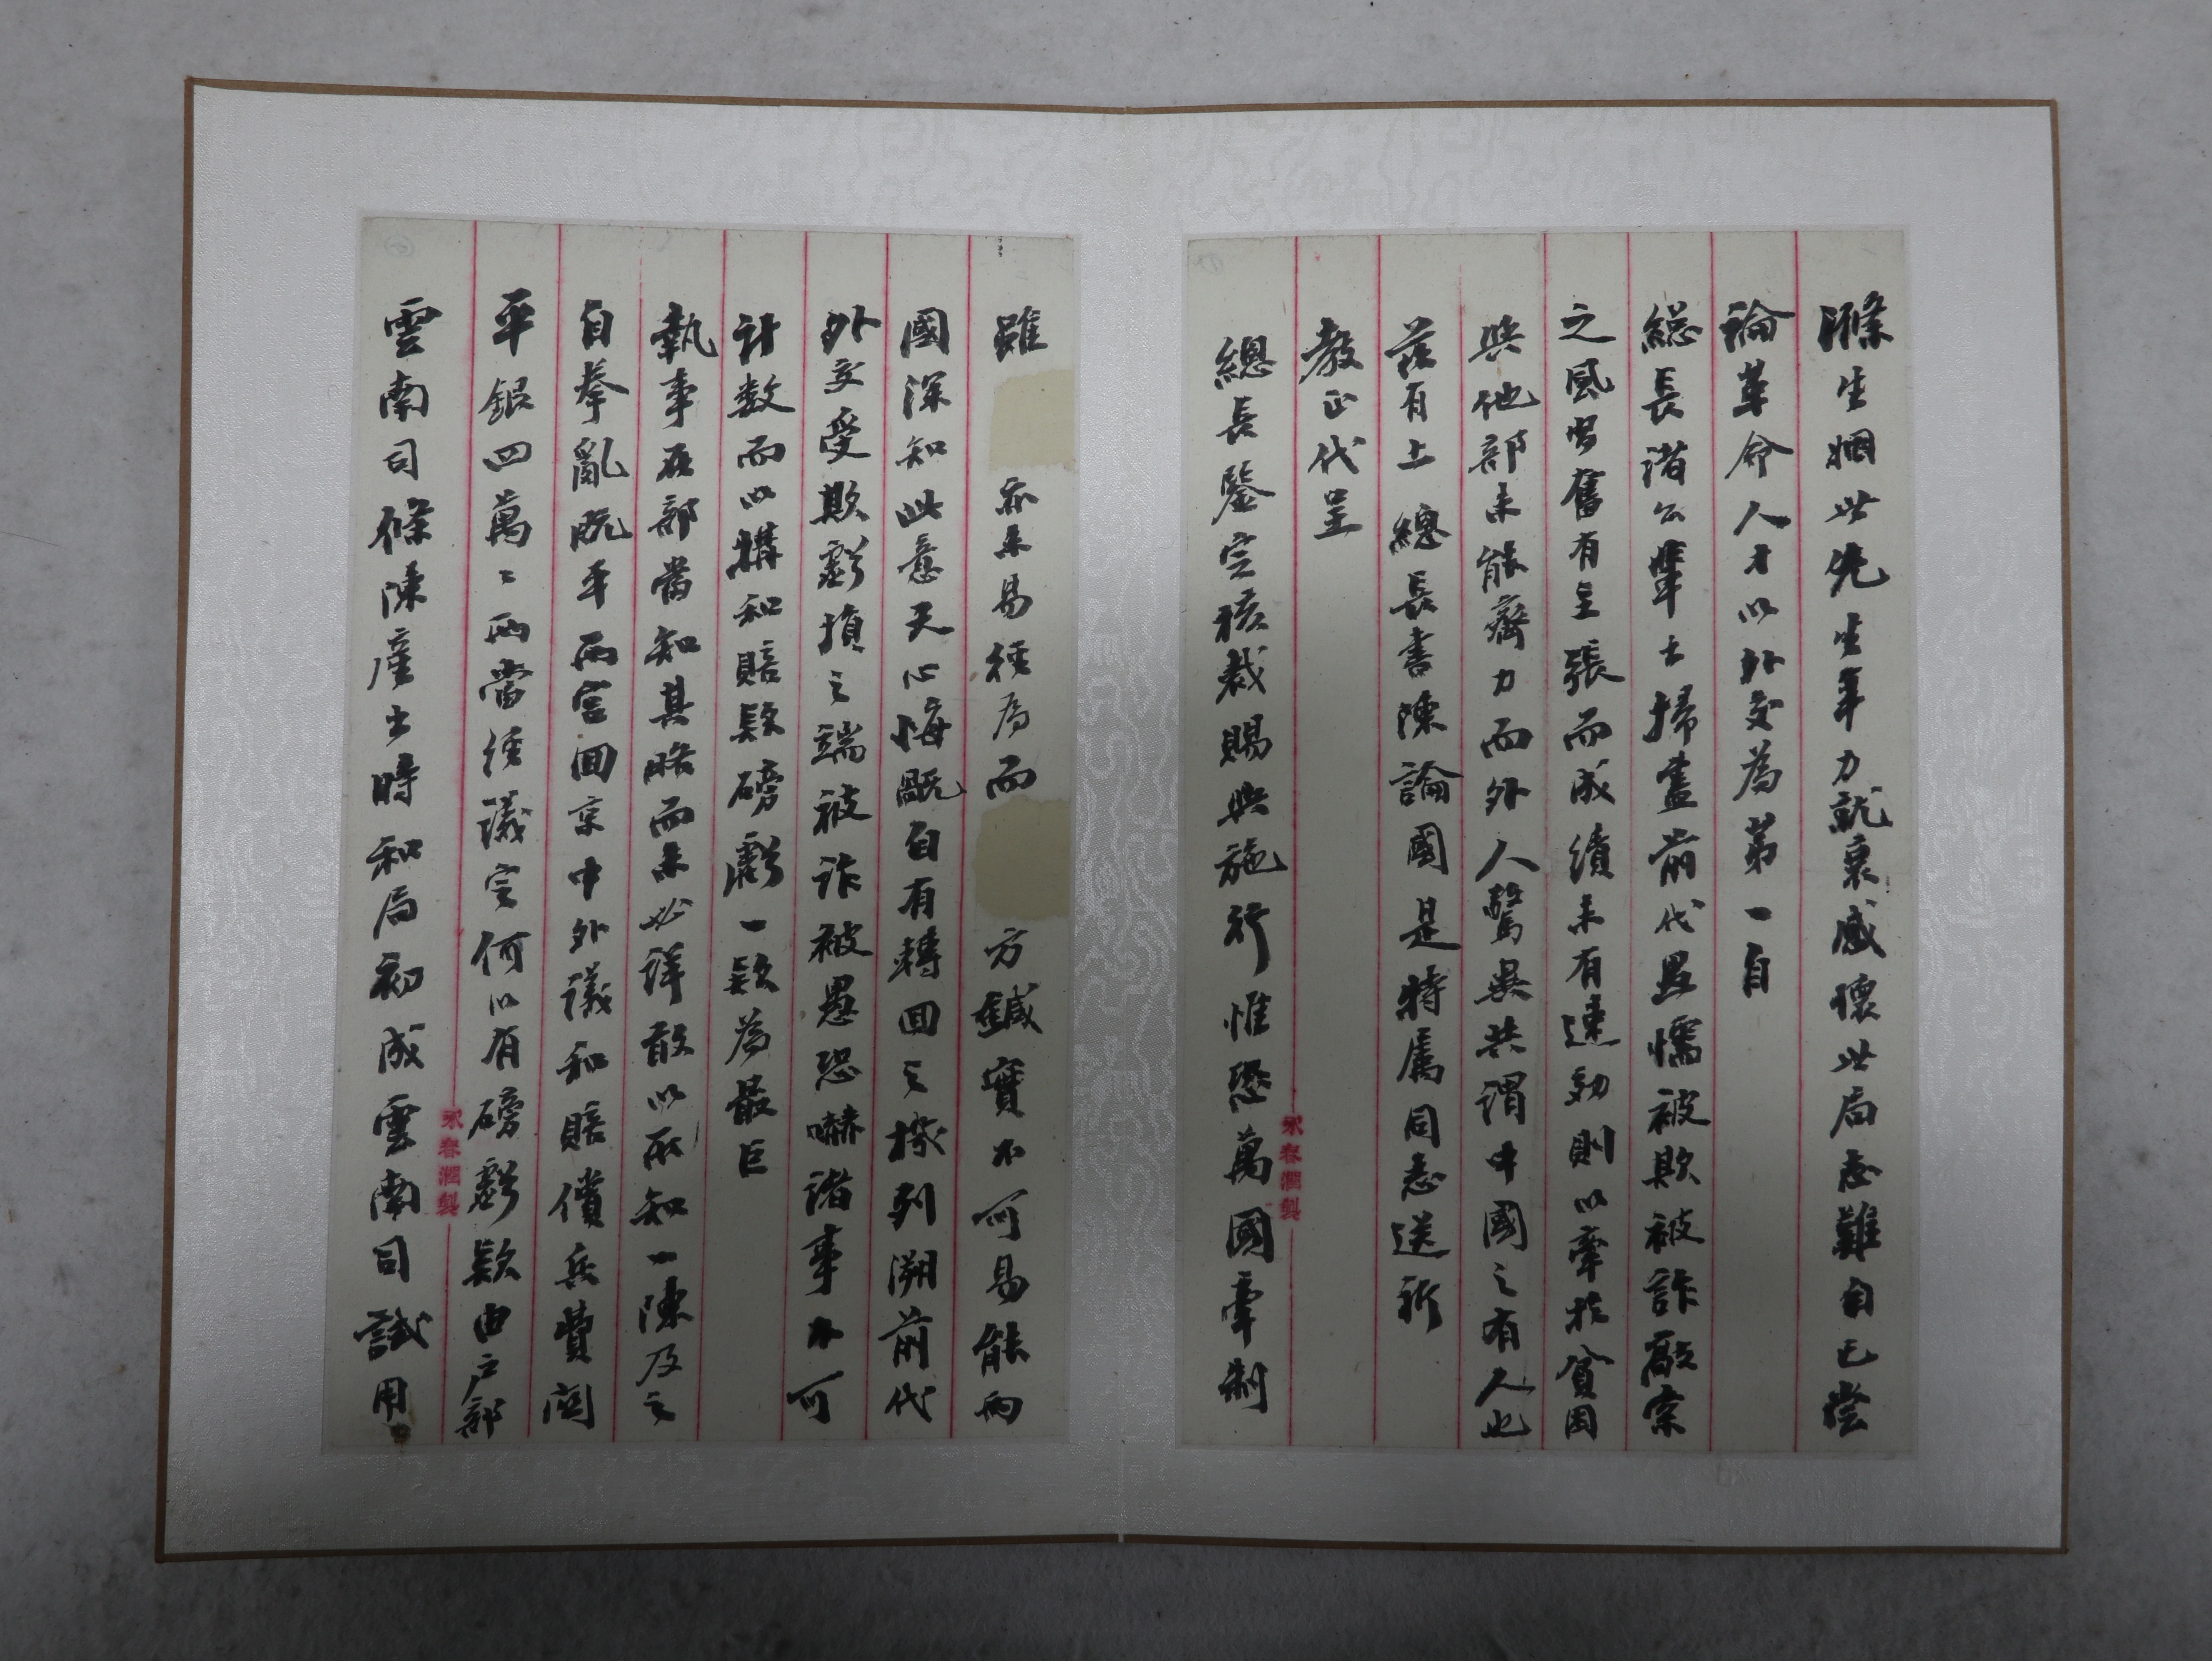 滌生姻世先生年力就衰感懷世局志難自已嘗
論革命人才以外交為第一自
總長諸公輩出掃盡前代愚懦被欺被詐敲索
之風習奮有主張而成績未有速効則以牽於貧困
與他部未能齊力而外人驚異共謂中國之有人也
茲有上 總長書陳論國是特屬同志送祈
教正代呈
總長鑒定核裁賜與施行惟恐萬國牽制
永春潤製
雖 亦未易經為而 方鍼實不可易能兩
國深知此意天心悔既自有轉回之機列溯前代
外交受欺虧損之端被詐被愚恐嚇諸事不可
計數而以媾和賠款磅虧一款為最巨
執事在部當知其略而未必詳敢以所知一陳及之
自拳亂既平兩宮回京中外議和賠償兵費關
平銀四萬〻兩當經議定何以有磅虧款由戶部
雲南司條陳產出時和局初成雲南司試用
永春潤製